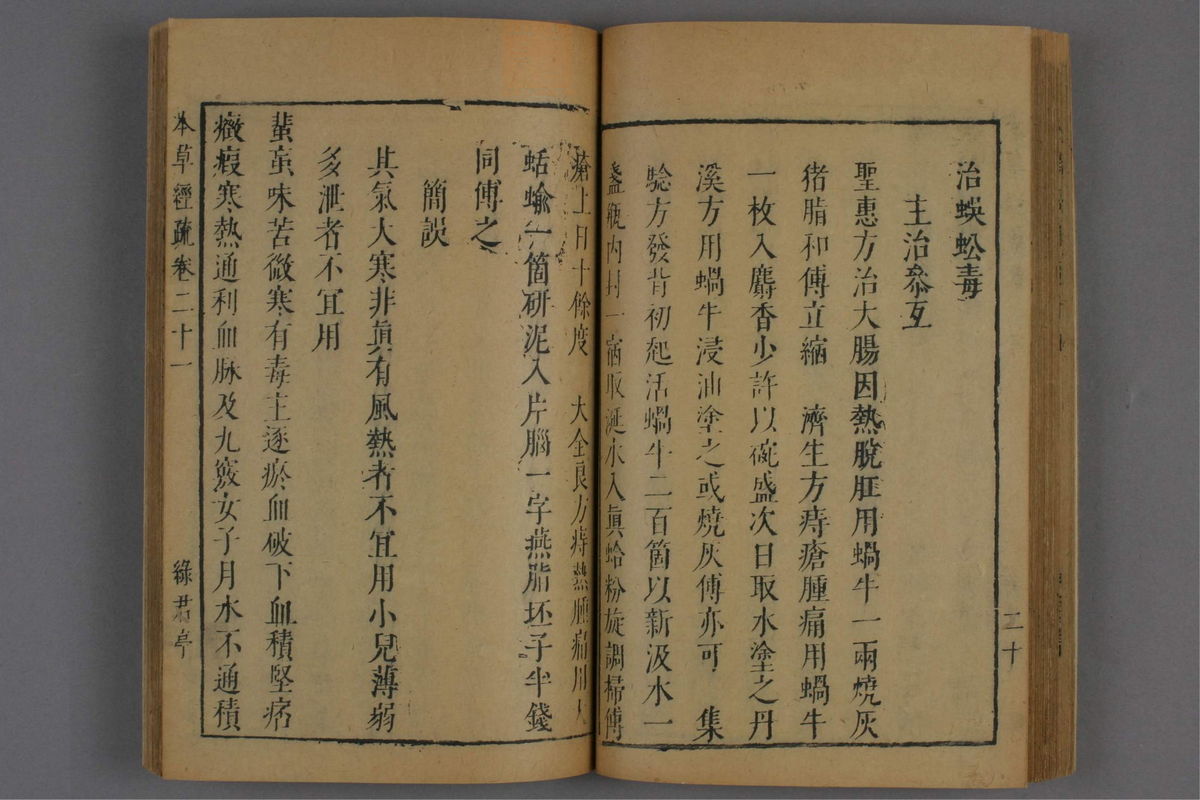 治蜈蚣毒
主治參互
聖惠方治大腸因熱脫肛用蝸牛一兩燒灰
猪脂和傅立縮　濟生方痔瘡腫痛用蝸牛
一枚入麝香少許以碗盛次日取水塗之丹
溪方用蝸牛浸油塗之或燒灰傅亦可　集
驗方發背初起活蝸牛二百箇以新汲水一
盞瓶內封一宿取涎水入眞蛤粉旋調掃傅
二十
瘡上日十餘度　大全良方痔熱腫痛用大
蛞蝓一箇研泥入片腦一字燕脂坯子半錢
同傅之
簡誤
其氣大寒非眞有風熱者不宜用小兒薄弱
多泄者不宜用
蜚䖟味苦微寒有毒主逐瘀血破下血積堅痞
癥瘕寒熱通利血脉及九竅女子月水不通積
本草經疏卷二十一
綠君亭